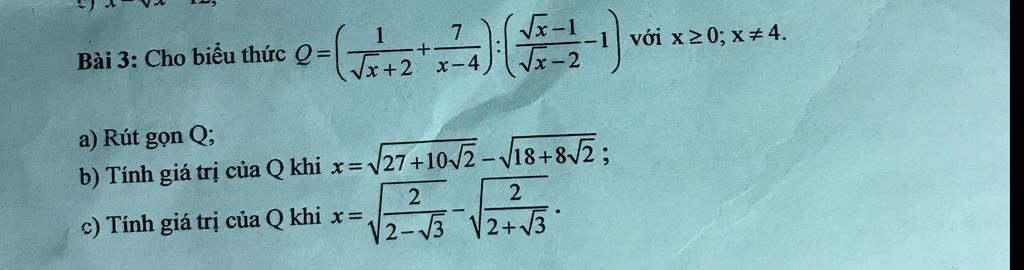 c) x − √x − 12;
Bài 3: Cho biểu thức Q = (1/(√x + 2) + 7/(x − 4)) : ((√x − 1)/(√x − 2) − 1) với x ≥ 0; x ≠ 4.
a) Rút gọn Q;
b) Tính giá trị của Q khi x = √(27 + 10√2) − √(18 + 8√2) ;
c) Tính giá trị của Q khi x = √(2/(2 − √3)) − √(2/(2 + √3)) .